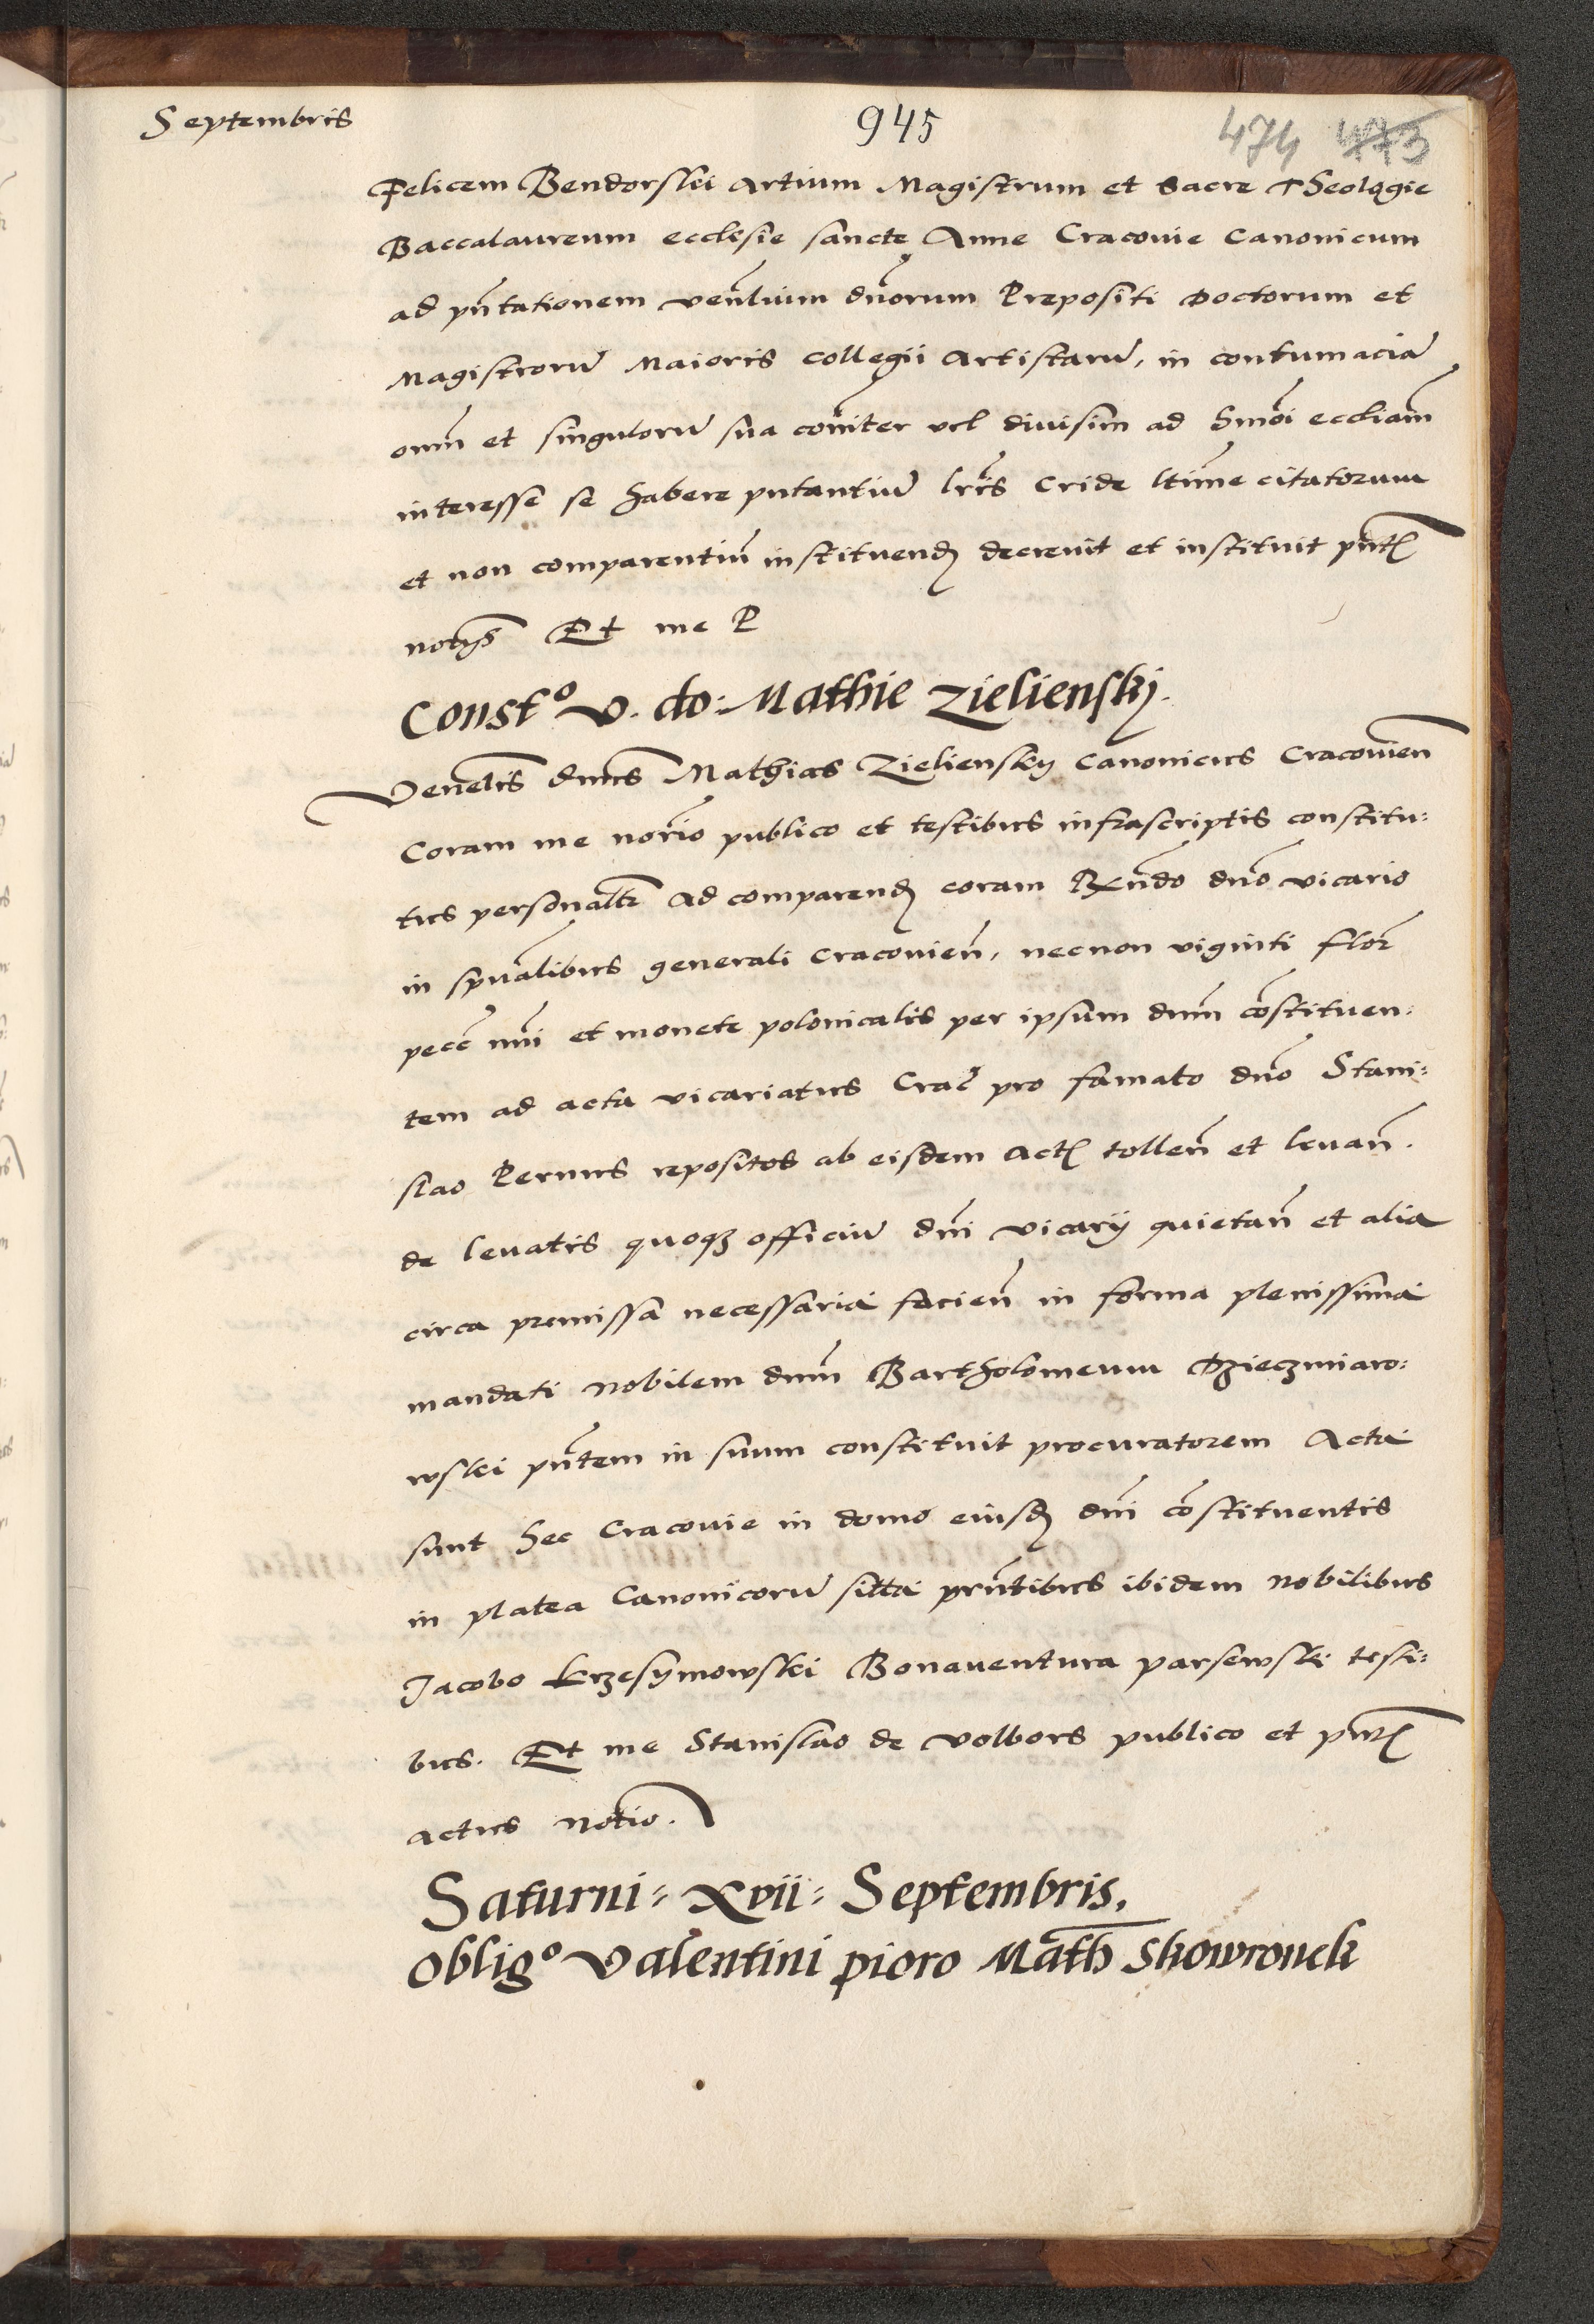 Septembris
945
474 473
Felicem Bendorski Artium Magistrum et Sacre Theologie
Baccalaureum ecclesie sancte Anne Cracovie Canonicum
ad pñtationem venłium dñorum Prepositi Doctorum et
Magistrorũ Maioris Collegii Artistarũ, in contumaciã
omñ et singulorũ sua coñiter vel divisim ad ecclãm
interesse se habere putantiũ lrĩs Cride ltĩme citatorum
et non comparentiũ instituend decrevit et instituit pñt
notijs Et me P
Const⁰ v. do: Mathie Zielienskj.
Venełis dnũs Mathias Zieliensky Canonicus Cracovieñ
Coram me norĩo publico et testibus infrascriptis constitu:
tus personałr ad comparend coram Rxñdo dño vicario
in spũalibus generali Cracovieñ, necnon viginti flor
pecc̃ nũi et monete polonicalis per ipsum dnm̃ cõstituen:
tem ad acta vicariatus Crac̃ pro famato dño Stani:
slao Pernus repositos ab eisdem Act tolleñ et levañ.
de levatis quoqz officiũ dñi vicarij quietañ et alia
circa premissa necessaria facieñ in forma plenissima
mandati Nobilem dnm̃ Bartholomeum Dzieczmiaro:
wski pñtem in suum constituit procuratorem Acta
sunt hec Cracovie in domo eiusd dñi cõstituentis
in platea Canonicorũ sitta prñtibus ibidem Nobilibus
Jacobo Krzesymowski Bonaventura parsewski testi:
bus. Et me Stanislao de Volbors publico et pñt
actus notio.
Saturni = xvii = Septembris.
Oblig⁰ Valentini pioro Math Skowronek